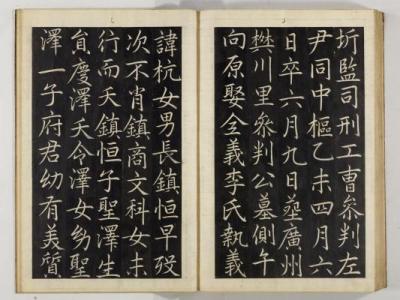 圻監司刑工曹叅判左
尹同中樞乙未四月六
日卒六月九日塟廣州
樊川里叅判公墓側午
向原娶全義李氏執義
諱杭女男長鎮恒早歿
次不肖鎮商文科女未
行而夭鎮恒子聖澤生
貟慶澤夭令澤女幼聖
澤一子府君幼有美質